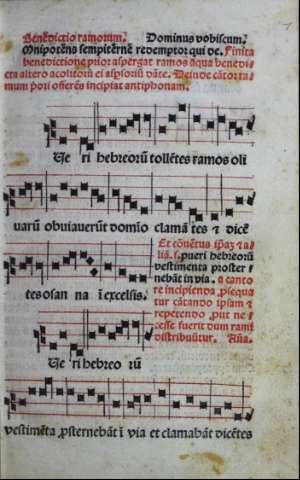 Benedictio ramorum. Dominus vobiscum.
Omnipotẽns sempiternẽ redemptor qui de. Finita
benedictione prior aspergat ramos aqua benedi-
cta altero acolitorũ ei aspsoriũ dãte. Deinde cãtor ra-
mum pori offerẽs incipiat antiphonam.
Ue ri hebreorũ tollẽtes ramos oli
uarũ obuiauerũt domĩo clamã tes & dicẽ
Et cõuẽtus
liã. s. pueri hebreorũ
vestimenta proster
nebãt in via. a canto
tes osan na ĩ excelsis.
re incipienda, psequa
tur cãtando ipsam &
repetendo, put ne-
cesse fuerit dum rami
distribuũtur. Aña.
Ue ri hebreo rũ
vestimẽta, psternebãt ĩ via et clamabãt dicẽtes